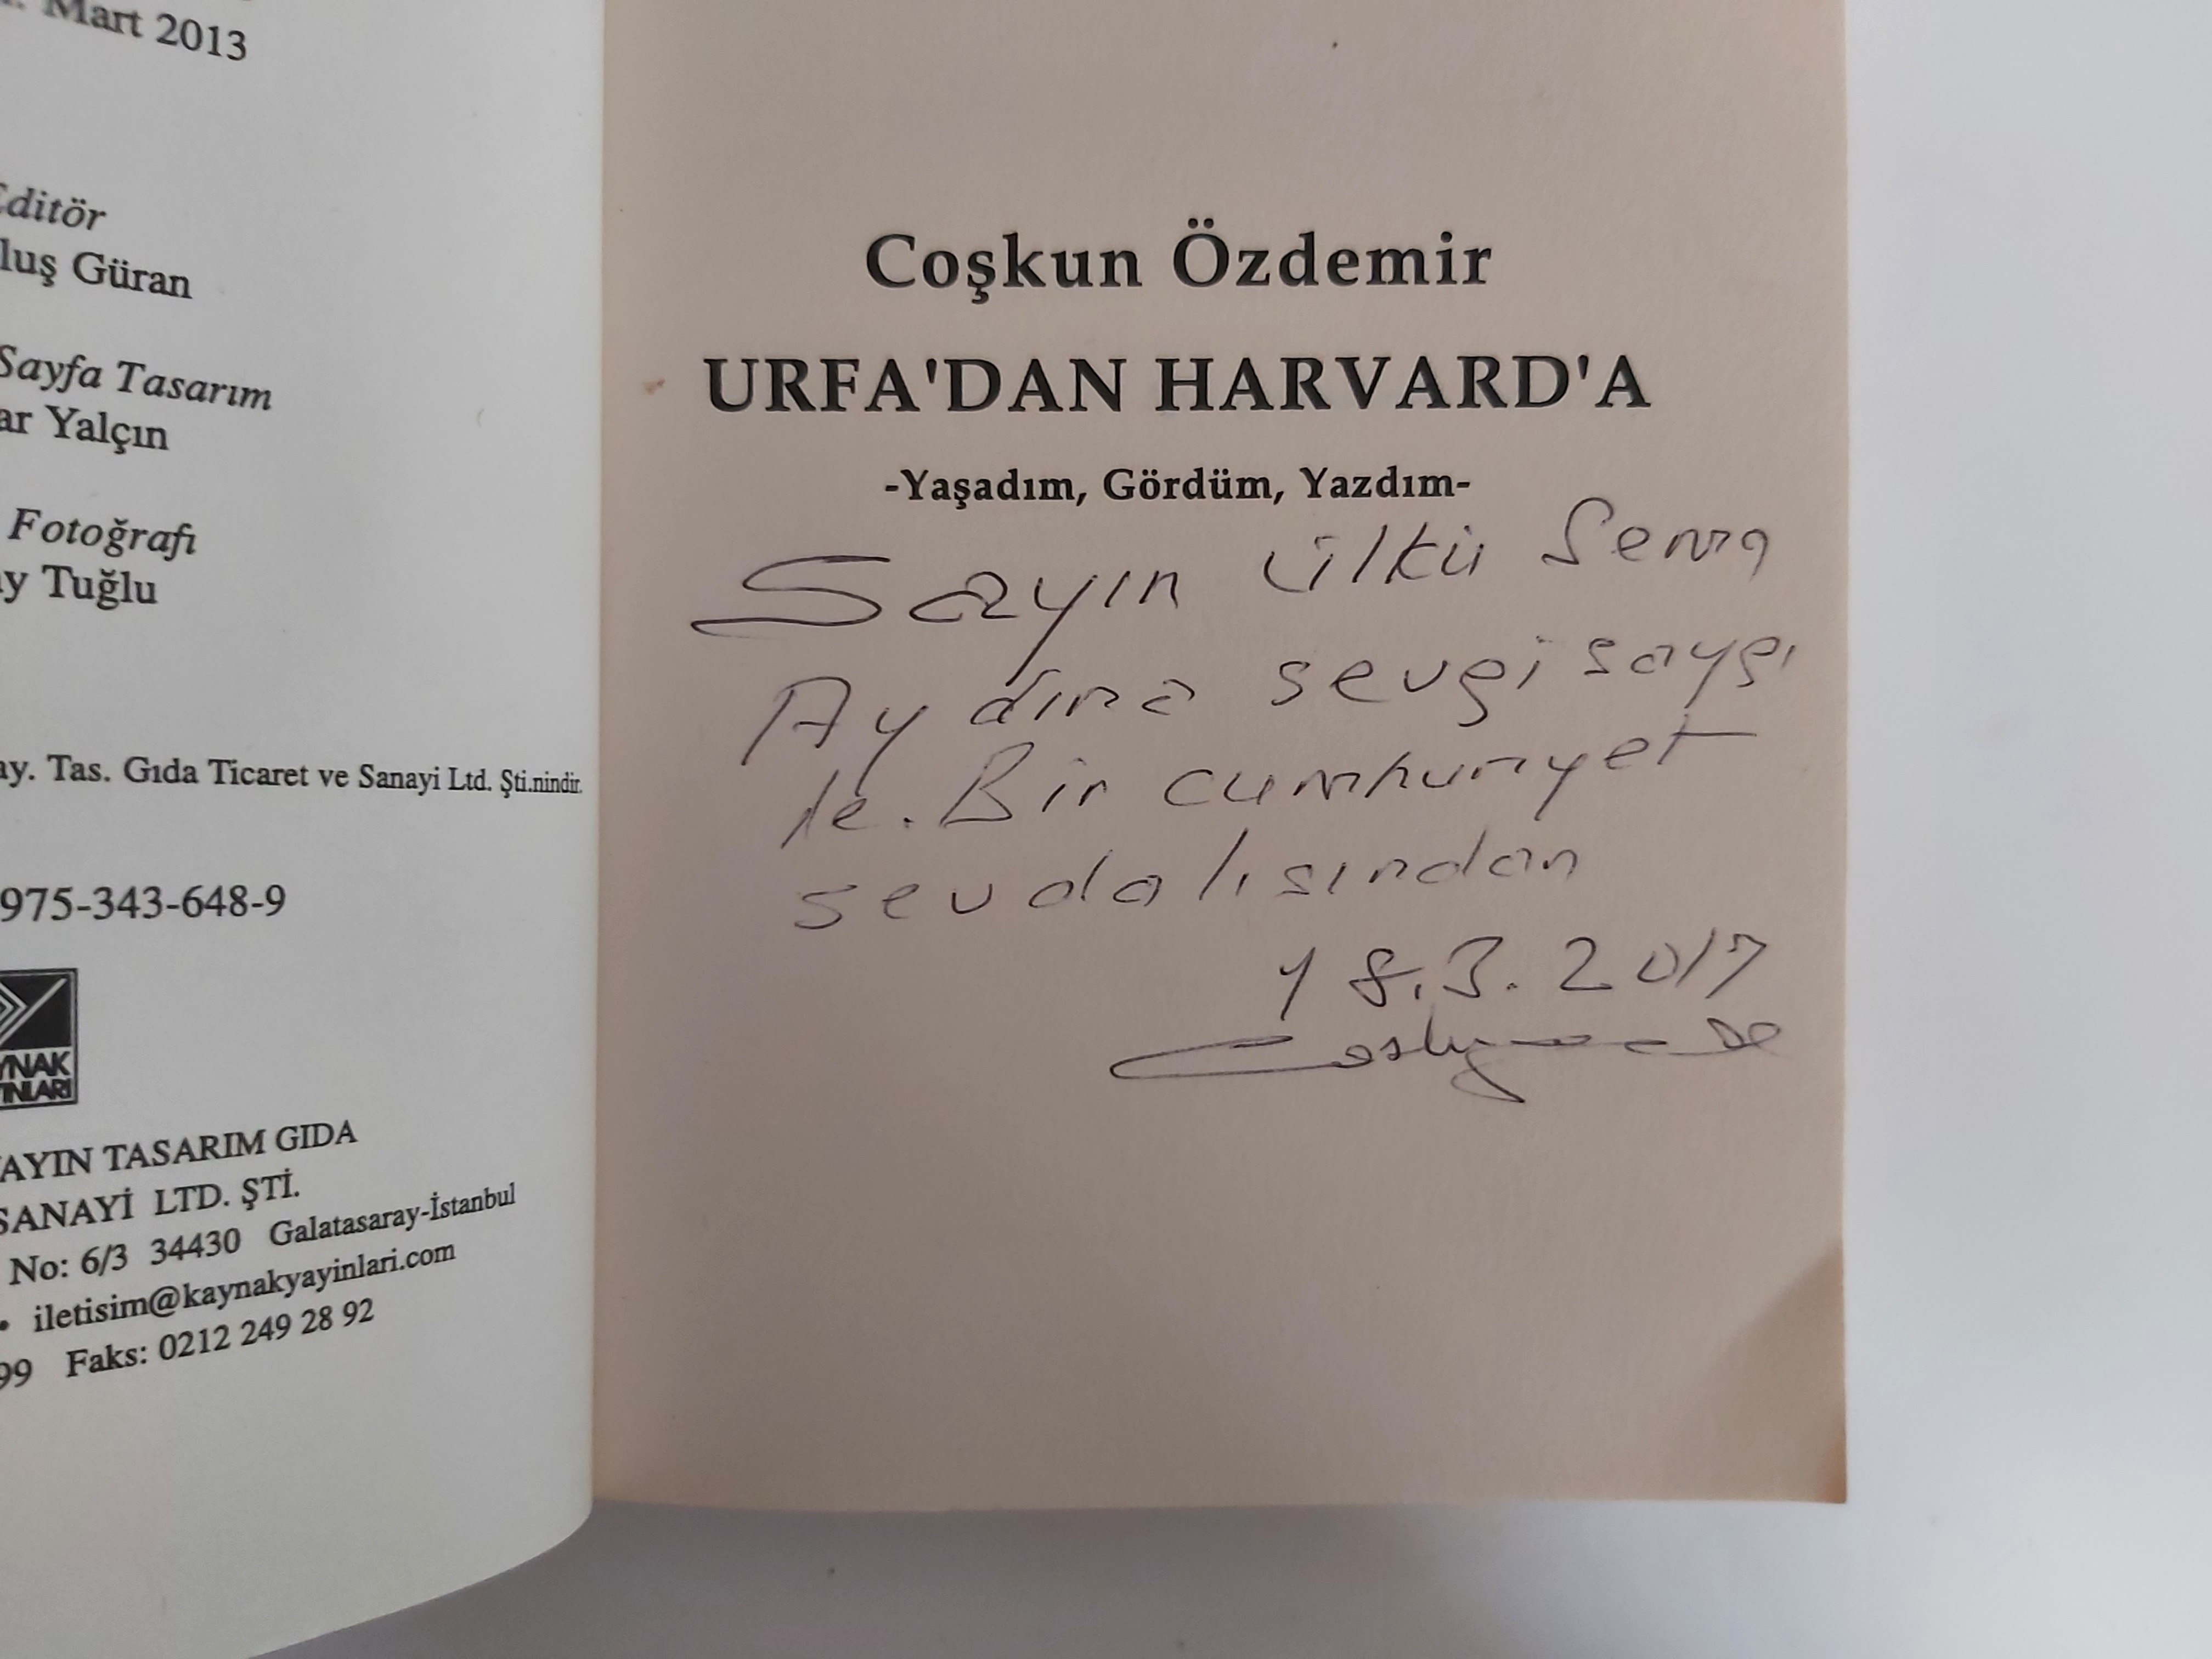 Mart 2013
Editör
luş Güran
Sayfa Tasarım
ar Yalçın
Fotoğrafı
y Tuğlu
ay. Tas. Gıda Ticaret ve Sanayi Ltd. Şti.nindir.
975-343-648-9
YNAK
YINLARI
YAYIN TASARIM GIDA
SANAYİ LTD. ŞTİ.
No: 6/3 34430 Galatasaray-İstanbul
• iletisim@kaynakyayinlari.com
99 Faks: 0212 249 28 92
Coşkun Özdemir
URFA'DAN HARVARD'A
-Yaşadım, Gördüm, Yazdım-
Sayın ülkü Semra
Aydına sevgi saygı
le. Bir cumhuriyet
sevdalısından
18.3.2017